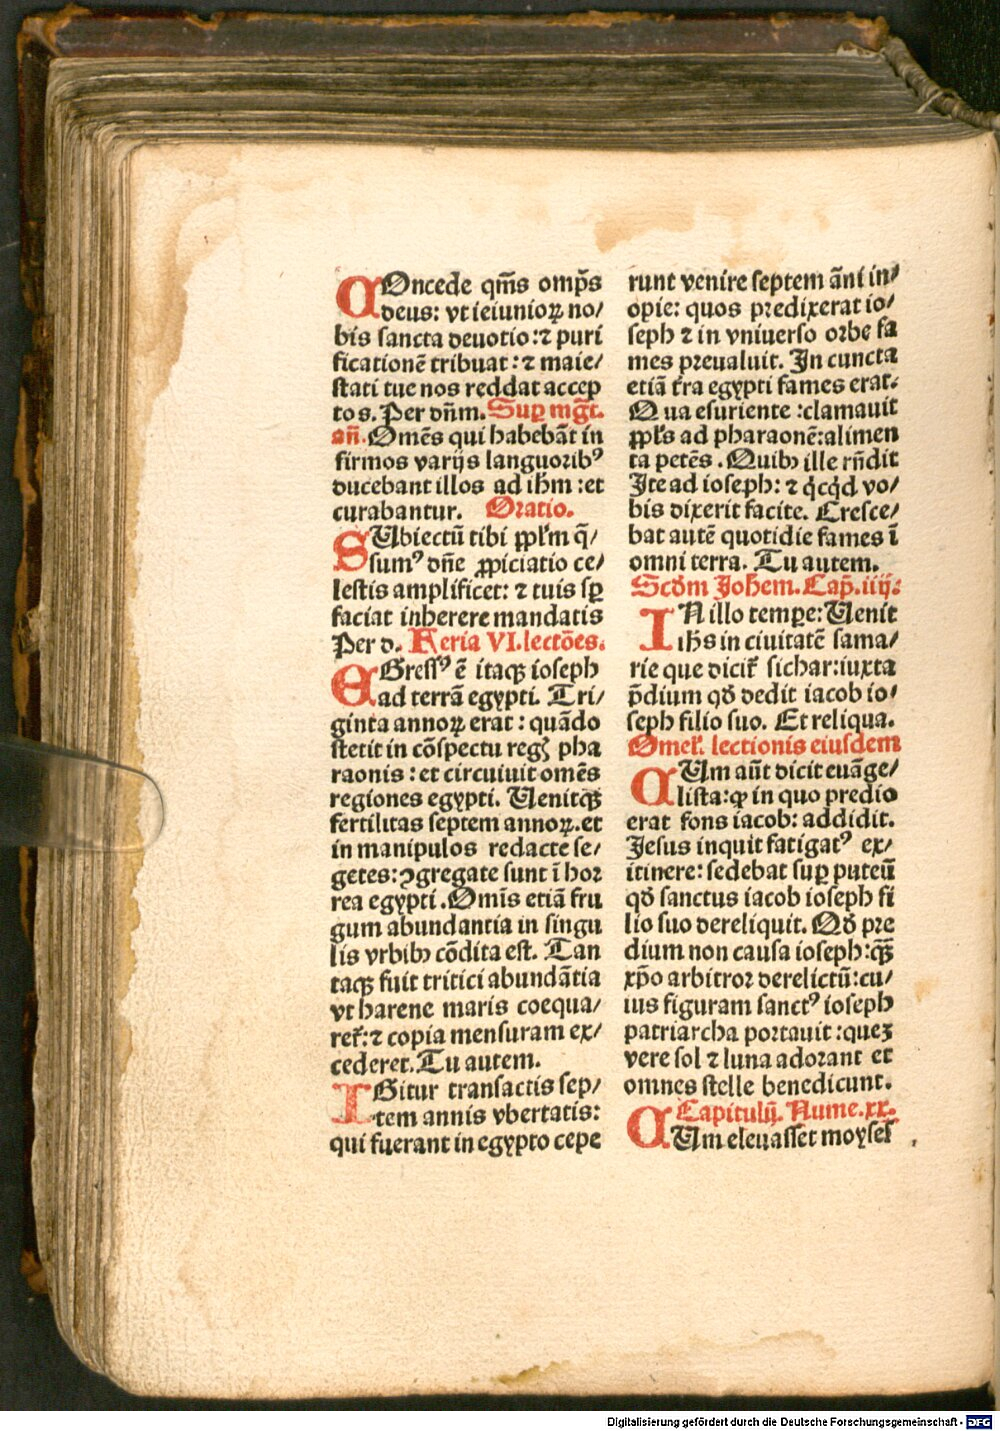 COncede qm̄s omp̄s
deus: vt ieiunioꝝ no/
bis sancta deuotio: ⁊ puri
ficationē tribuat: ⁊ maie/
stati tue nos reddat accep
tos. Per dn̄m. Sup̲ mg̅t.
an̄. Omēs qui habebāt in
firmos varijs languorib⁹
ducebant illos ad ih̄m: et
curabantur. Oratio.
SUbiectū tibi ppl̄m q̄/
sum⁹ dn̄e ꝓpiciatio ce/
lestis amplificet: ⁊ tuis sꝑ
faciat inherere mandatis
Per d. Feria VI. lectōes.
EGress⁹ ē itaqꝫ ioseph
ad terrā egypti. Tri/
ginta annoꝝ erat: quādo
stetit in cōspectu regꝭ pha
raonis: et circuiuit omēs
regiones egypti. Uenitqꝫ
fertilitas septem annoꝝ. et
in manipulos redacte se/
getes: ꝯgregate sunt ī hor
rea egypti. Omīs etiā fru
gum abundantia in singu
lis vrbibꝫ cōdita est. Tan
taqꝫ fuit tritici abundātia
vt harene maris coequa/
ret̄: ⁊ copia mensuram ex/
cederet. Tu autem.
IGitur transactis sep/
tem annis vbertatis:
qui fuerant in egypto cepe
runt venire septem āni in/
opie: quos predixerat io/
seph ⁊ in vniuerso orbe fa
mes preualuit. In cuncta
etiā t̄ra egypti fames erat.
Qua esuriente: clamauit
ppl̄s ad pharaonē: alimen
ta petēs. Quibꝫ ille rn̄dit
Ite ad ioseph: ⁊ q̇cq̇d vo/
bis dixerit facite. Cresce/
bat autē quotidie fames ī
omni terra. Tu autem.
Scd̄m Johem. Cap̄. iiij.
IN illo temꝑe: Uenit
ih̄s in ciuitatē sama/
rie que dicit̄ sichar: iuxta
p̄dium qd̄ dedit iacob io/
seph filio suo. Et reliqua.
Omel̄. lectionis eiusdem
CUm aūt dicit euāge/
lista: ꝙ in quo predio
erat fons iacob: addidit.
Jesus inquit fatigat⁹ ex/
itinere: sedebat suꝑ puteū
qd̄ sanctus iacob ioseph fi
lio suo dereliquit. Qd̄ pre
dium non causa ioseph: qꝫ̄
xp̄o arbitror derelictū: cu/
ius figuram sanct⁹ ioseph
patriarcha portauit: queꝫ
vere sol ⁊ luna adorant et
omnes stelle benedicunt.
Capitulū. Nume. xx.
CUm eleuasset moyses
Digitalisierung gefördert durch die Deutsche Forschungsgemeinschaft - DFG